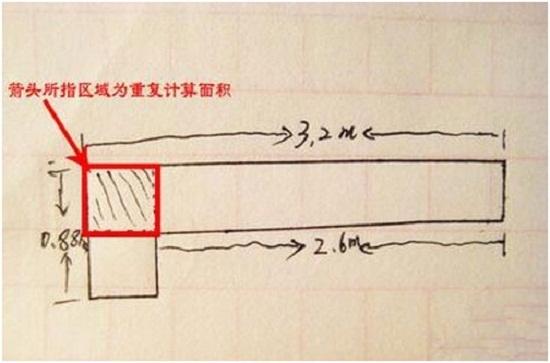 箭头所指区域为重复计算面积
3,2m
0.88
2.6m